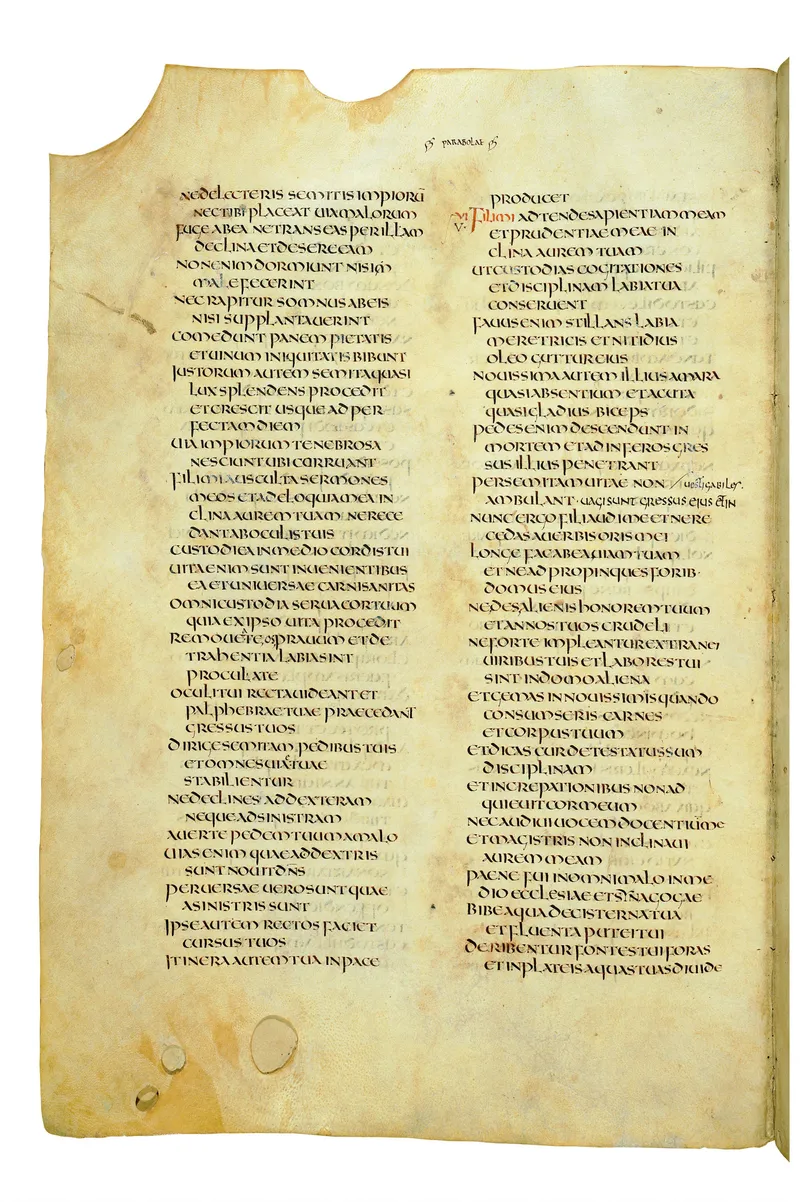 PARABOLAE
NEDELECTERIS SEMITIS IMPIORŪ
NECTIBI PLACEAT UIA MALORUM
FUGE ABEA NETRANSEAS PERILLAM
DECLINA ET DESERE EAM
NON ENIM DORMIUNT NISI
MALE FECERINT
NEC RAPITUR SOMNUS ABEIS
NISI SUPPLANTAUERINT
COMEDUNT PANEM PIETATIS
ET UINUM INIQUITATIS BIBUNT
JUSTORUM AUTEM SEMITA QUASI
LUX SPLENDENS PROCEDIT
ET CRESCIT USQUE AD PER
FECTAM DIEM
UIA IMPIORUM TENEBROSA
NESCIUNT UBI CORRUANT
FILI MI AUSCULTA SERMONES
MEOS ET AD ELOQUIA MEA IN
CLINA AUREM TUAM NE RECE
DANT ABOCULIS TUIS
CUSTODI EA IN MEDIO CORDIS TUI
UITA ENIM SUNT INUENIENTIBUS
EA ET UNIUERSAE CARNI SANITAS
OMNI CUSTODIA SERUA COR TUUM
QUIA EX IPSO UITA PROCEDIT
REMOUE ATE OS PRAUUM ET DE
TRAHENTIA LABIA SINT
PROCUL ATE
OCULI TUI RECTA UIDEANT ET
PALPHEBRAE TUAE PRAECEDANT
GRESSUS TUOS
DIRIGE SEMITAM PEDIBUS TUIS
ET OMNES UIAE TUAE
STABILIENTUR
NE DECLINES AD DEXTERAM
NEQUE AD SINISTRAM
AUERTE PEDEM TUUM AMALO
UIAS ENIM QUAE A DEXTRIS
SUNT NOUIT DN̄S
PERUERSAE UERO SUNT QUAE
ASINISTRIS SUNT
IPSE AUTEM RECTOS FACIET
CURSUS TUOS
ITINERA AUTEM TUA IN PACE
PRODUCET
VI FILI MI ADTENDE SAPIENTIAM MEAM
V· ET PRUDENTIAE MEAE IN
CLINA AUREM TUAM
UT CUSTODIAS COGITATIONES
ET DISCIPLINAM LABIA TUA
CONSERUENT
FAUUS ENIM STILLANS LABIA
MERETRICIS ET NITIDIUS
OLEO GUTTUR EIUS
NOUISSIMA AUTEM ILLIUS AMARA
QUASI ABSENTIUM ET ACUTA
QUASI GLADIUS BICEPS
PEDES ENIM DESCENDUNT IN
MORTEM ET AD INFEROS GRES
SUS ILLIUS PENETRANT
PER SEMITAM UITAE NON
AMBULANT · UAGI SUNT GRESSUS EIUS ET IN uestigabiles.
NUNC ERGO FILI AUDI ME ET NE RE
CEDAS AUERBIS ORIS MEI
LONGE FAC ABEA UIAM TUAM
ET NE ADPROPINQUES FORIB·
DOMUS EIUS
NE DES ALIENIS HONOREM TUUM
ET ANNOS TUOS CRUDELI
NE FORTE IMPLEANTUR EXTRANEI
UIRIBUS TUIS ET LABORES TUI
SINT IN DOMO ALIENA
ET GEMAS IN NOUISSIMIS QUANDO
CONSUMSERIS CARNES
ET CORPUS TUUM
ET DICAS CUR DETESTATUS SUM
DISCIPLINAM
ET INCREPATIONIBUS NON AD
QUIEUIT COR MEUM
NEC AUDIUI UOCEM DOCENTIUM ME
ET MAGISTRIS NON INCLINAUI
AUREM MEAM
PAENE FUI IN OMNI MALO IN ME
DIO ECCLESIAE ET SYNAGOGAE
BIBE AQUA DE CISTERNA TUA
ET FLUENTA PUTEI TUI
DERIBENTUR FONTES TUI FORAS
ET IN PLATEIS AQUAS TUAS DIUIDE